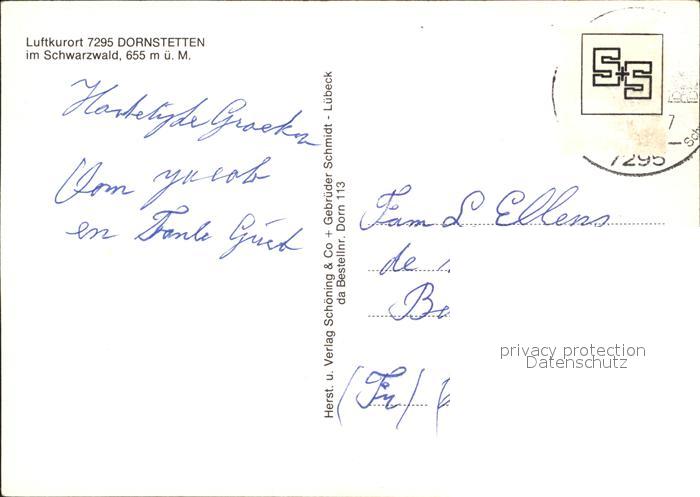 Luftkurort 7295 DORNSTETTEN
im Schwarzwald, 655 m ü. M.
Hartelijke Groeten
Oom Jacob
en Tante
Herst. u. Verlag Schöning & Co + Gebrüder Schmidt - Lübeck
da Bestellnr. Dorn 113
S+S
7
7295
Fam L Ellens
de
(Fr)
privacy protection
Datenschutz